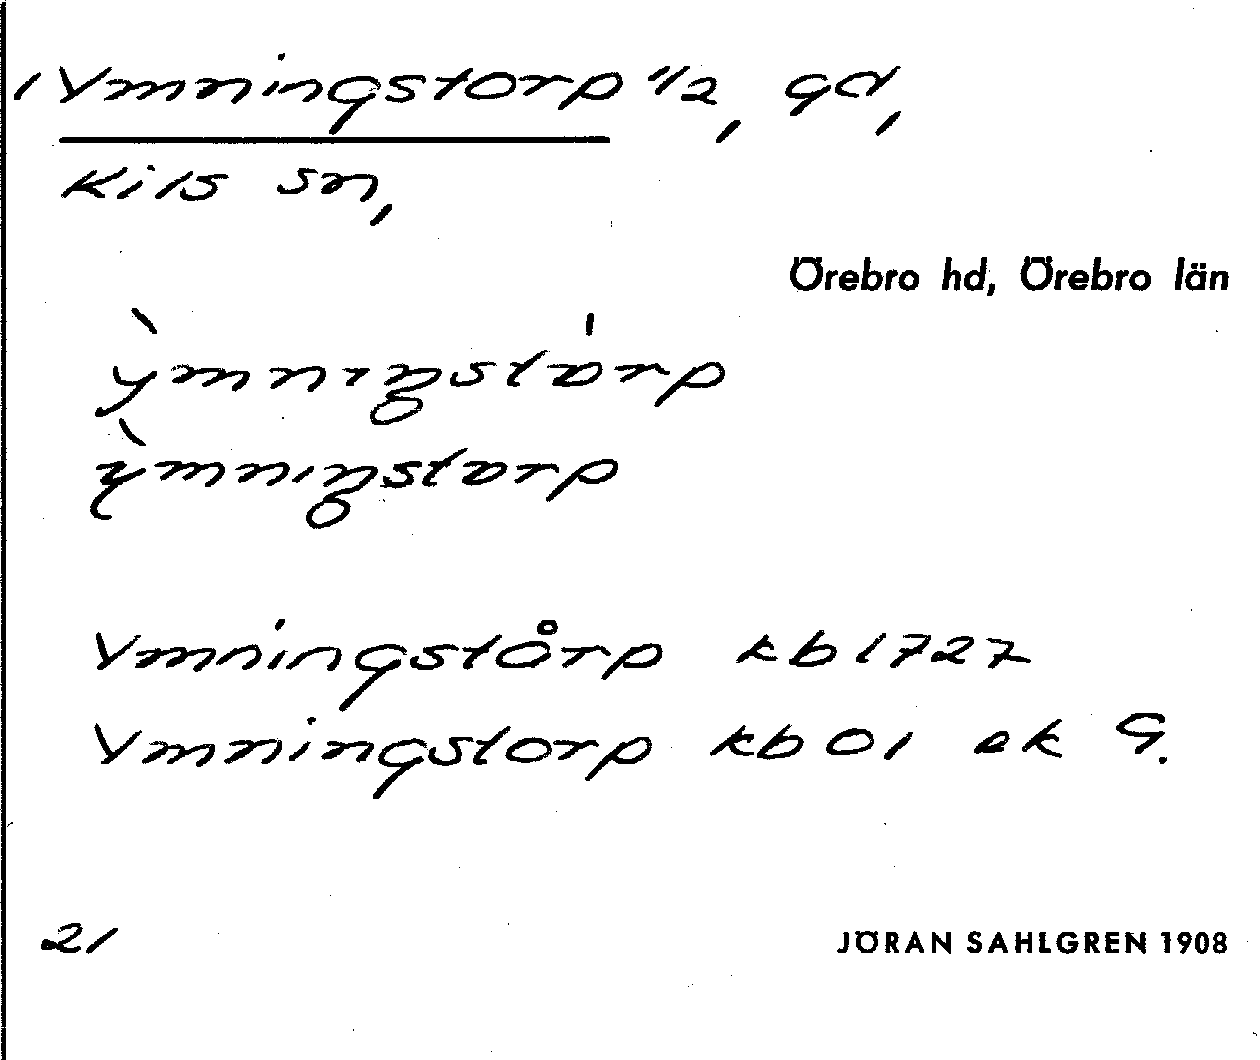 1 Ymningstorp 1/2, gd,
Kils sn,
Örebro hd, Örebro län
ỳmnıŋstɷrp
ỳmnıŋstɷrp
Ymningstårp kb 1727
Ymningstorp kb 01 ek G.
21
JÖRAN SAHLGREN 1908